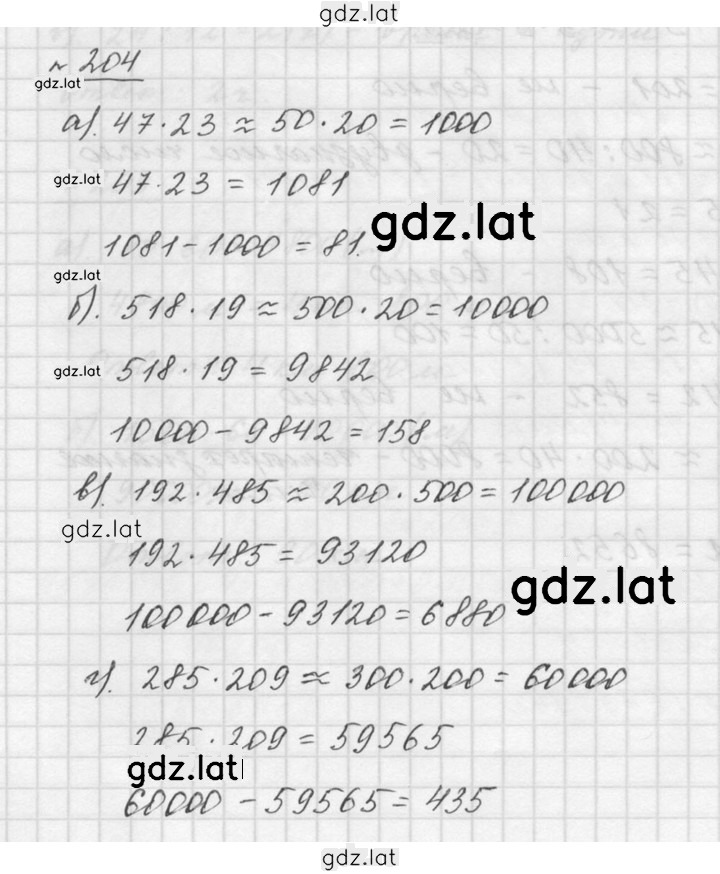 gdz.lat
№ 204
gdz.lat
а). 47 · 23 ≈ 50 · 20 = 1000
gdz.lat 47 · 23 = 1081
gdz.lat
1081 - 1000 = 81.
gdz.lat
б). 518 · 19 ≈ 500 · 20 = 10000
gdz.lat 518 · 19 = 9842
10000 - 9842 = 158
в). 192 · 485 ≈ 200 · 500 = 100000
gdz.lat
192 · 485 = 93120
gdz.lat
100000 - 93120 = 6880
г). 285 · 209 ≈ 300 · 200 = 60000
285 · 209 = 59565
gdz.lat
60000 - 59565 = 435
gdz.lat